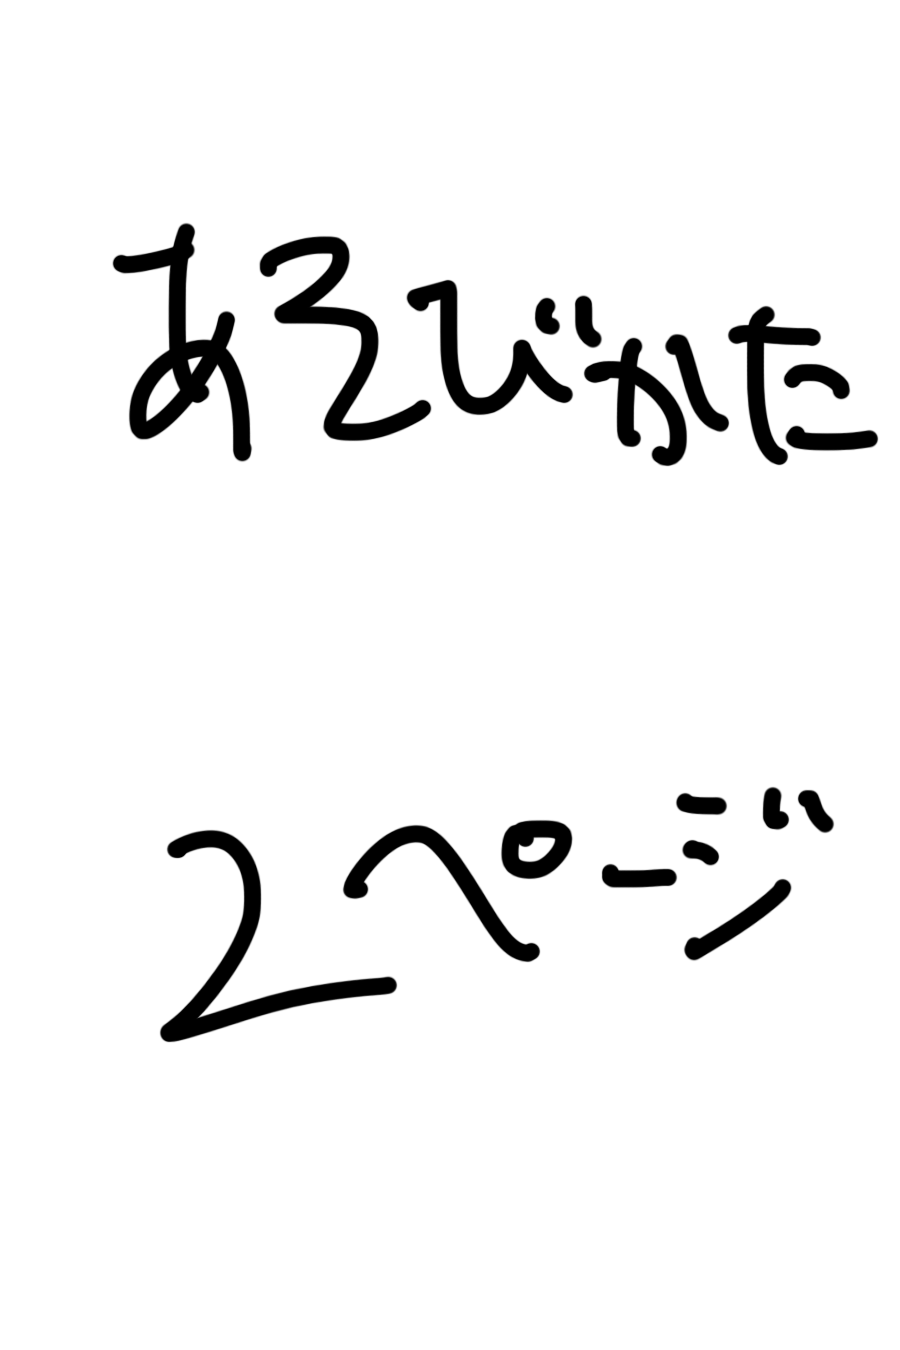 あそびかた
2ページ